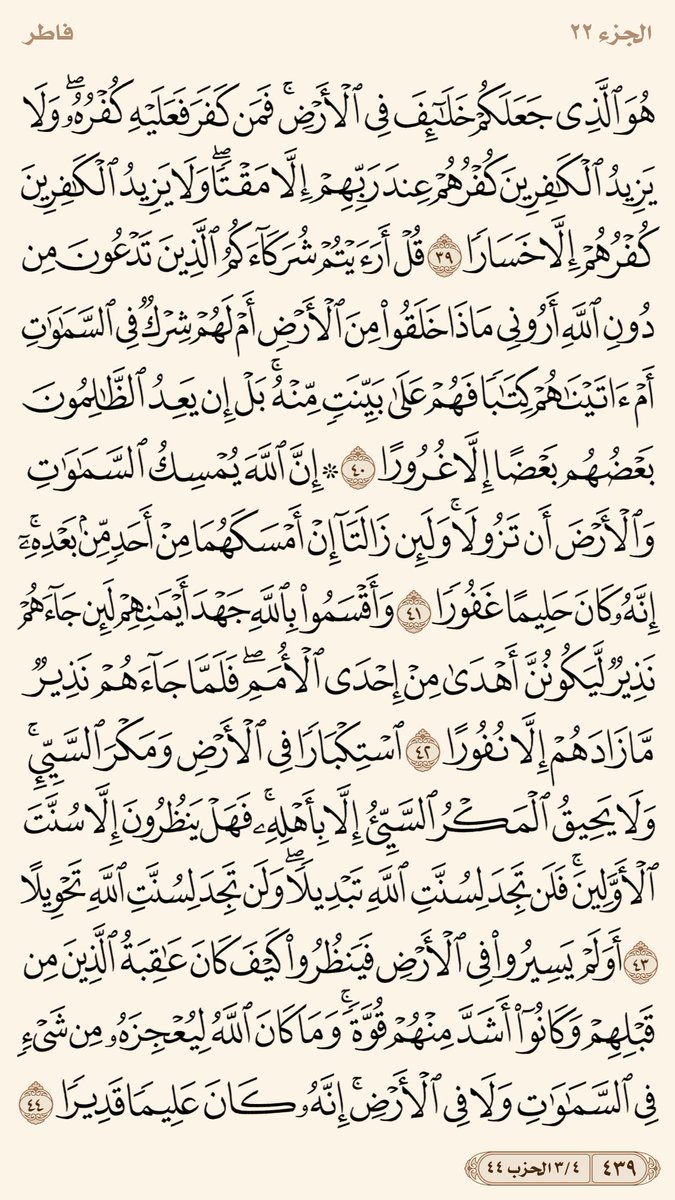 الجزء ٢٢
فاطر
هُوَ ٱلَّذِى جَعَلَكُمْ خَلَـٰٓئِفَ فِى ٱلْأَرْضِ ۚ فَمَن كَفَرَ فَعَلَيْهِ كُفْرُهُۥ ۖ وَلَا
يَزِيدُ ٱلْكَـٰفِرِينَ كُفْرُهُمْ عِندَ رَبِّهِمْ إِلَّا مَقْتًا ۖ وَلَا يَزِيدُ ٱلْكَـٰفِرِينَ
كُفْرُهُمْ إِلَّا خَسَارًا ٣٩ قُلْ أَرَءَيْتُمْ شُرَكَآءَكُمُ ٱلَّذِينَ تَدْعُونَ مِن
دُونِ ٱللَّهِ أَرُونِى مَاذَا خَلَقُوا۟ مِنَ ٱلْأَرْضِ أَمْ لَهُمْ شِرْكٌ فِى ٱلسَّمَـٰوَٰتِ
أَمْ ءَاتَيْنَـٰهُمْ كِتَـٰبًا فَهُمْ عَلَىٰ بَيِّنَتٍ مِّنْهُ ۚ بَلْ إِن يَعِدُ ٱلظَّـٰلِمُونَ
بَعْضُهُم بَعْضًا إِلَّا غُرُورًا ٤٠ ۞ إِنَّ ٱللَّهَ يُمْسِكُ ٱلسَّمَـٰوَٰتِ
وَٱلْأَرْضَ أَن تَزُولَا ۚ وَلَئِن زَالَتَآ إِنْ أَمْسَكَهُمَا مِنْ أَحَدٍ مِّنۢ بَعْدِهِۦٓ ۚ
إِنَّهُۥ كَانَ حَلِيمًا غَفُورًا ٤١ وَأَقْسَمُوا۟ بِٱللَّهِ جَهْدَ أَيْمَـٰنِهِمْ لَئِن جَآءَهُمْ
نَذِيرٌ لَّيَكُونُنَّ أَهْدَىٰ مِنْ إِحْدَى ٱلْأُمَمِ ۖ فَلَمَّا جَآءَهُمْ نَذِيرٌ
مَّا زَادَهُمْ إِلَّا نُفُورًا ٤٢ ٱسْتِكْبَارًا فِى ٱلْأَرْضِ وَمَكْرَ ٱلسَّيِّئِ ۚ
وَلَا يَحِيقُ ٱلْمَكْرُ ٱلسَّيِّئُ إِلَّا بِأَهْلِهِۦ ۚ فَهَلْ يَنظُرُونَ إِلَّا سُنَّتَ
ٱلْأَوَّلِينَ ۚ فَلَن تَجِدَ لِسُنَّتِ ٱللَّهِ تَبْدِيلًا ۖ وَلَن تَجِدَ لِسُنَّتِ ٱللَّهِ تَحْوِيلًا
٤٣ أَوَلَمْ يَسِيرُوا۟ فِى ٱلْأَرْضِ فَيَنظُرُوا۟ كَيْفَ كَانَ عَـٰقِبَةُ ٱلَّذِينَ مِن
قَبْلِهِمْ وَكَانُوٓا۟ أَشَدَّ مِنْهُمْ قُوَّةً ۚ وَمَا كَانَ ٱللَّهُ لِيُعْجِزَهُۥ مِن شَىْءٍ
فِى ٱلسَّمَـٰوَٰتِ وَلَا فِى ٱلْأَرْضِ ۚ إِنَّهُۥ كَانَ عَلِيمًا قَدِيرًا ٤٤
٤٣٩ ٣/٤ الحزب ٤٤